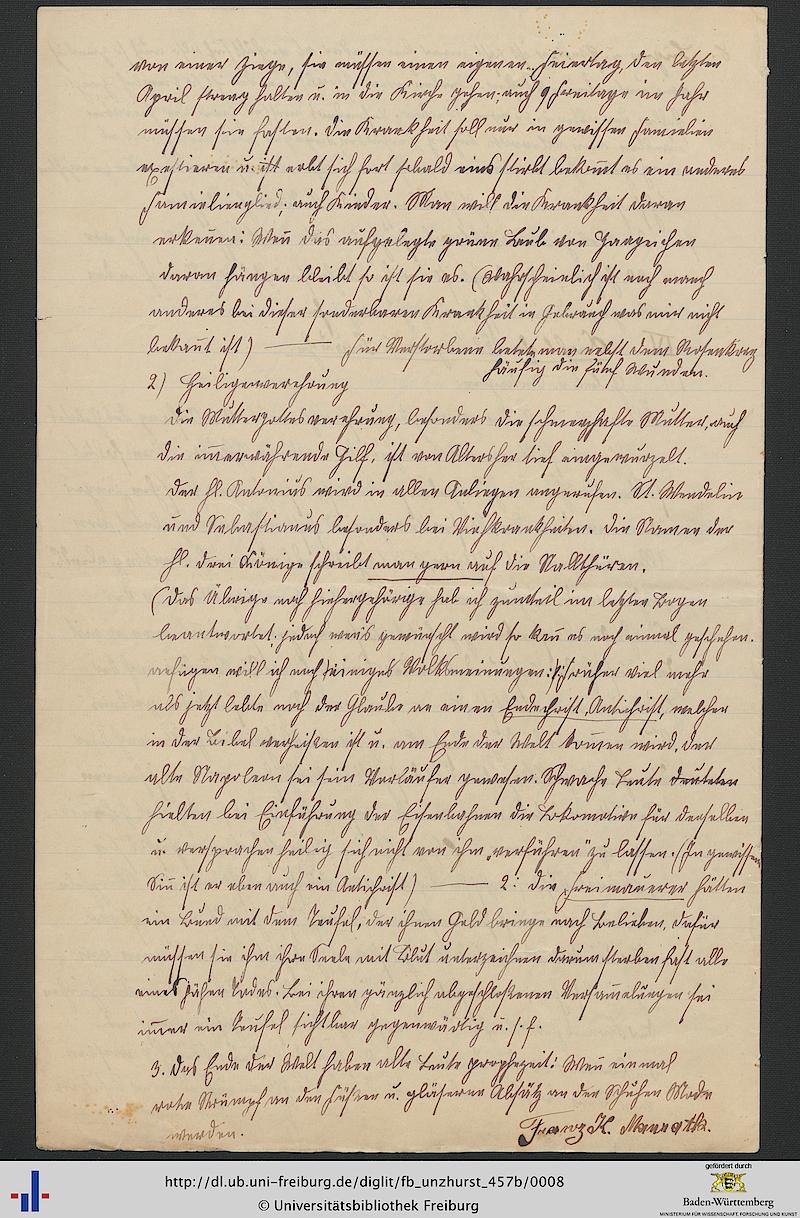 von einer Ziege, sie müssen einen eigenen Feiertag, den letzten
April streng halten u. in die Kirche gehen; auch 9 Freitage im Jahr
müssen sie fasten. Die Krankheit soll nur in gewissen Familien
existieren u. erbt sich fort sobald eins stirbt bekom̅t es ein anderes
Familienglied; auch Kinder. Man will die Krankheit daran
erken̅en: Wen̅ das aufgelegte grüne Laub von Hageichen
daran hängen bleibt so ist sie es. (Wahrscheinlich ist noch manch
anderes bei dieser sonderbaren Krankheit in Gebrauch was mir nicht
bekan̅t ist) — Für Verstorbene betet man nebst dem Rosenkranz
häufig die fünf Wunden.
2) Heiligenverehrung
Die Muttergottesverehrung, besonders die schmerzhafte Mutter, auch
die im̅erwährende Hilf, ist von Altersher tief eingewurzelt.
Der hl. Antonius wird in allen Anliegen angerufen. St. Wendelin
und Sebastianus besonders bei Viehkrankheiten. Die Namen der
hl. drei Könige schreibt man gern auf die Stallthüren.
(Das Übrige noch hiehergehörige hab ich zumtheil im letzten Bogen
beantwortet. jedoch wen̅s gewünscht wird so kan̅ es noch einmal geschehen.
anfügen will ich noch einiges Volksmeinungen: Früher viel mehr
als jetzt lebte noch der Glaube an einen Endechrist, Antichrist, welcher
in der Bibel verheißen ist u. am Ende der Welt kom̅en wird. der
alte Napoleon sei sein Vorläufer gewesen. Schwache Leute deuteten
hielten bei Einführung der Eisenbahnen die Lokomotive für denselben
u. versprachen heilig sich nicht von ihm „verführen“ zu lassen. (In gewissem
Sin̅ ist er eben auch ein Antichrist) — 2: die Freimaurer hätten
ein Bund mit dem Teufel, der ihnen Geld bringe nach Belieben, dafür
müssen sie ihm ihre Seele mit Blut unterzeichnen darum sterben fast alle
eines jähen Todes. Bei ihren gänzlich abgeschloßenen Versammelungen sei
im̅er ein Teufel sichtbar gegenwärtig u. s. f.
3. Das Ende der Welt haben alte Leute prophezeit: Wen̅ einmal
rote Strümpf an den Füßen u. gläserne Absätz an den Schuhen Mode
werden.
Franz K.
http://dl.ub.uni-freiburg.de/diglit/fb_unzhurst_457b/0008
© Universitätsbibliothek Freiburg
gefördert durch
Baden-Württemberg
MINISTERIUM FÜR WISSENSCHAFT, FORSCHUNG UND KUNST